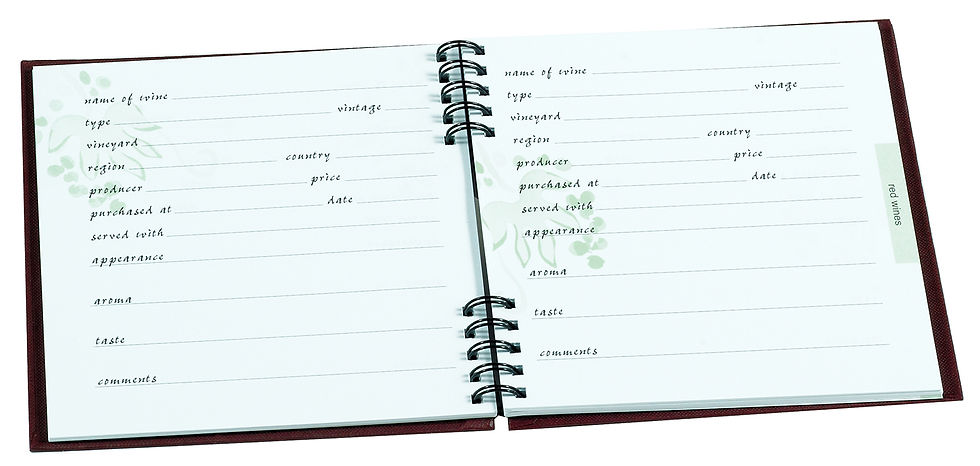 name of wine
type vintage
vineyard
region country
producer price
purchased at date
served with
appearance
aroma
taste
comments
name of wine
type vintage
vineyard
region country
producer price
purchased at date
served with
appearance
aroma
taste
comments
red wines